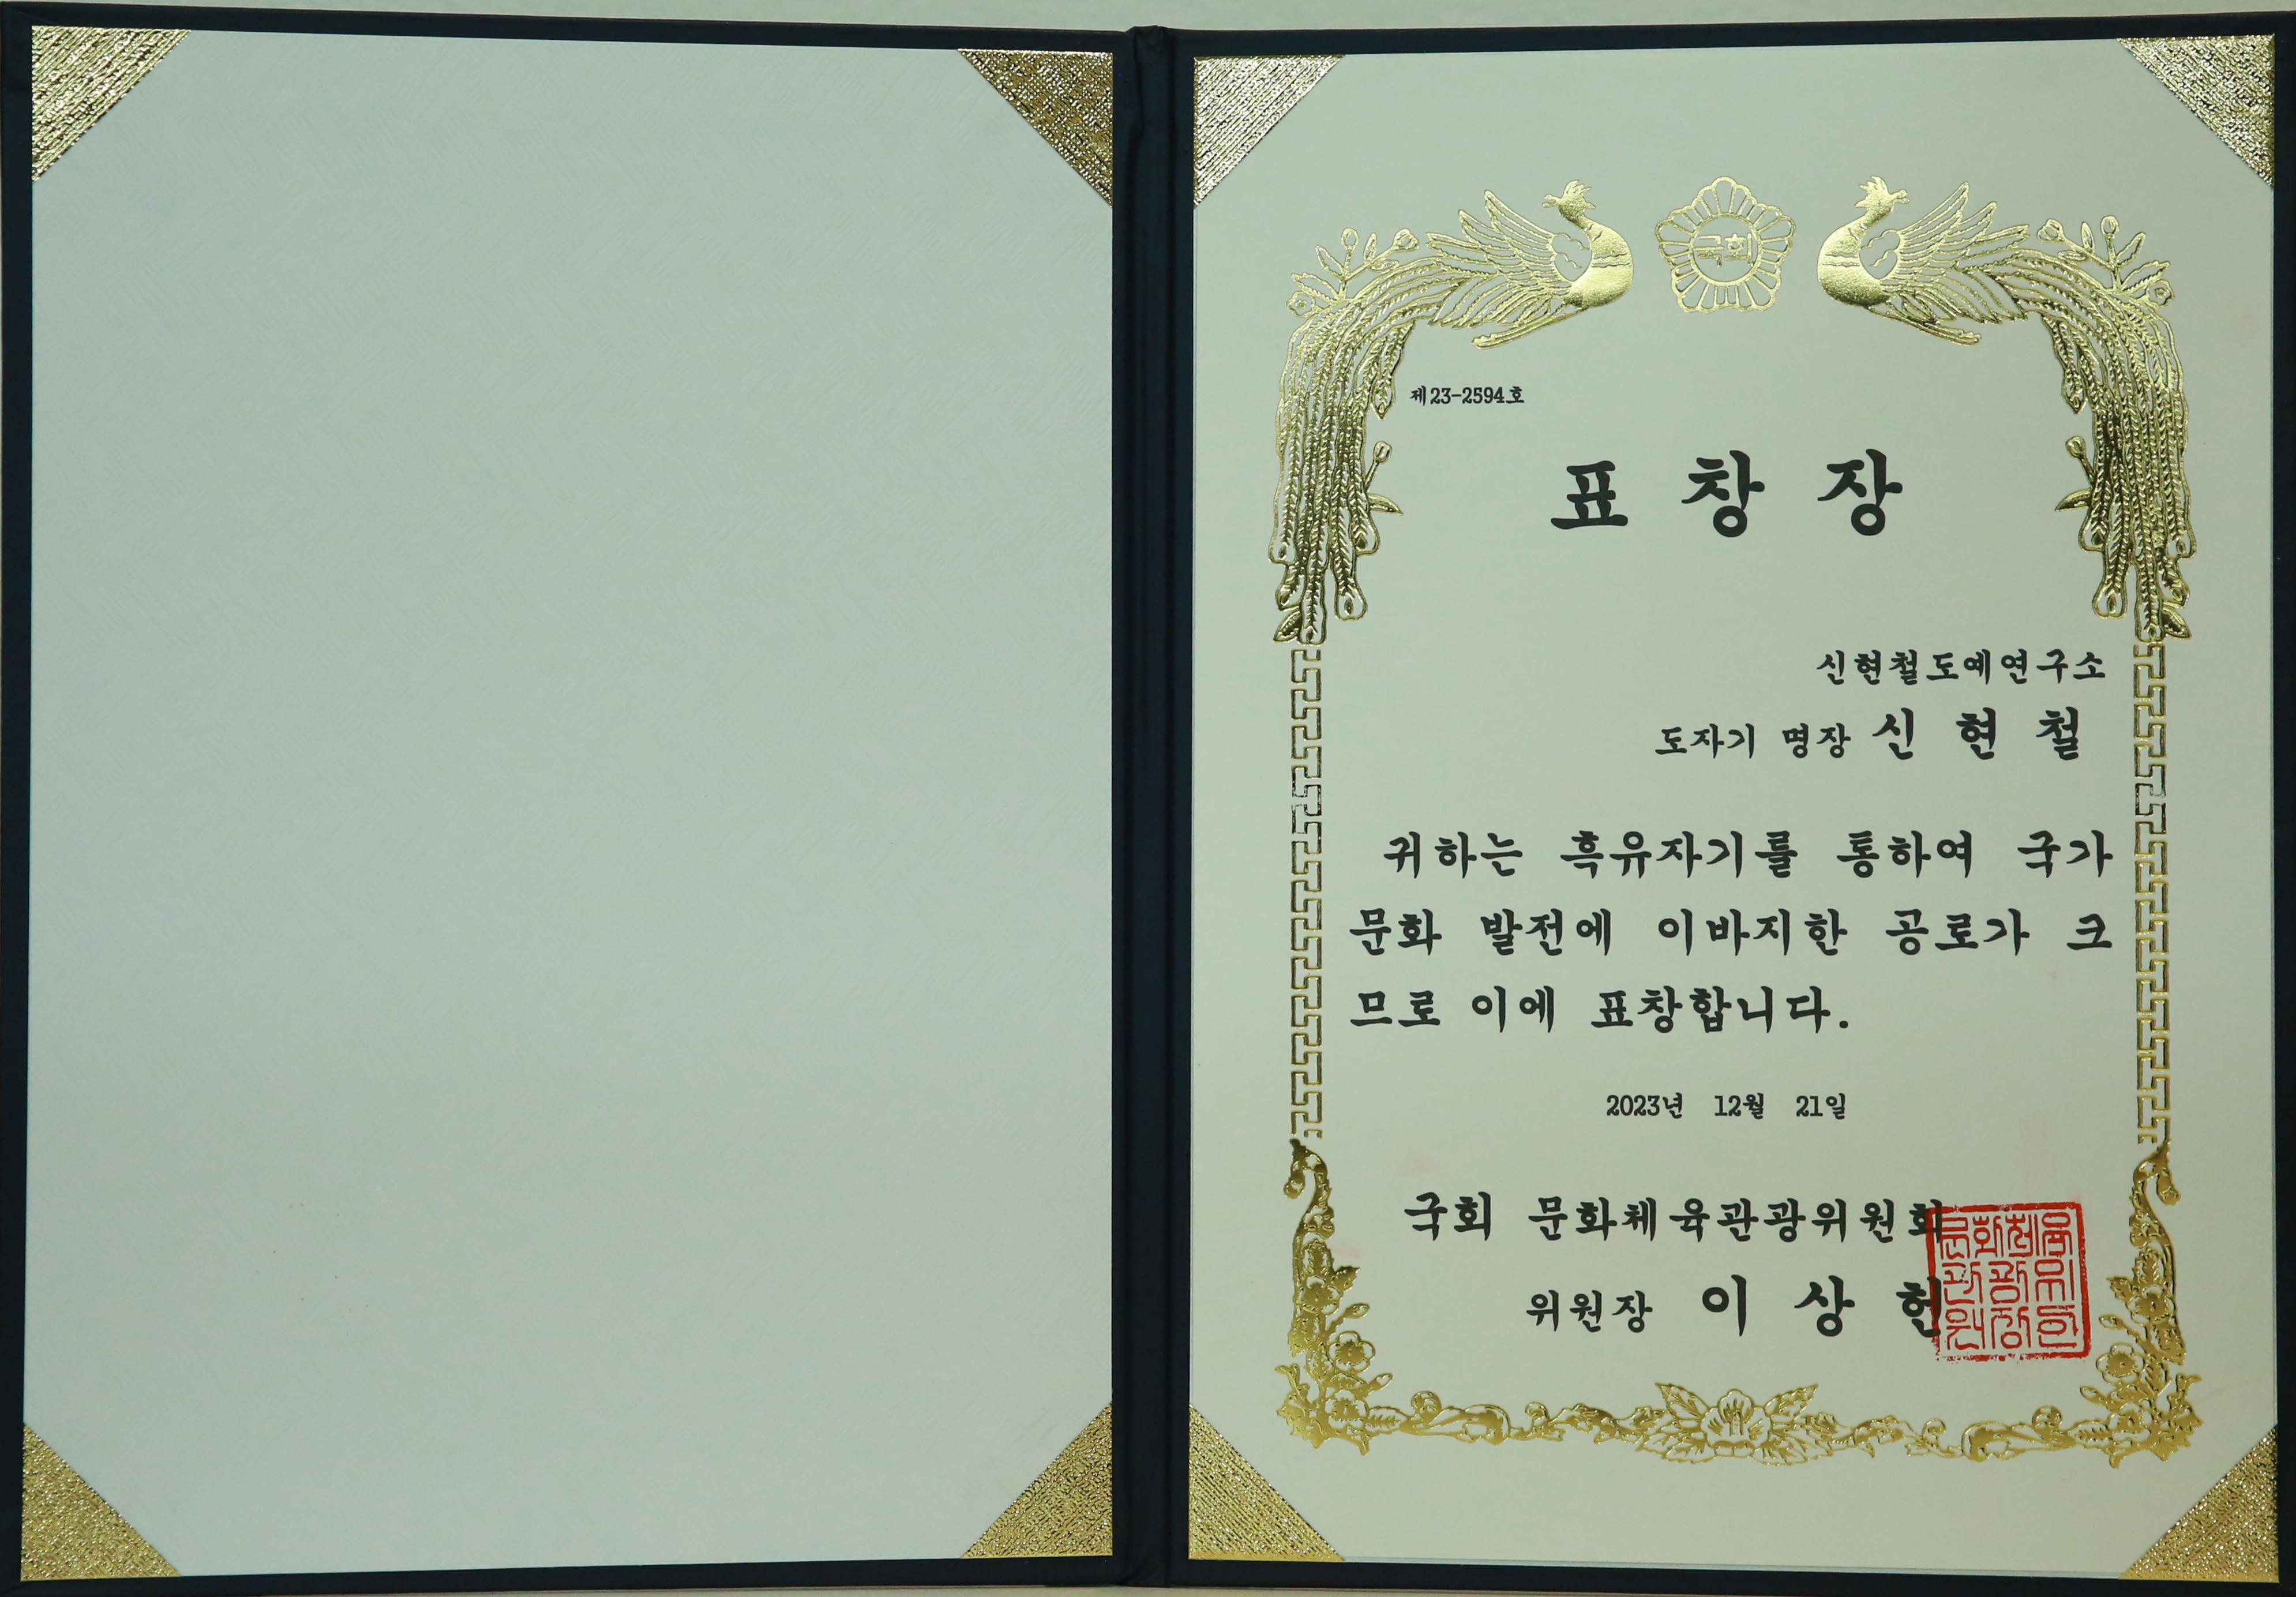 국회
제23-2594호
표 창 장
신현철도예연구소
도자기 명장 신 현 철
귀하는 흑유자기를 통하여 국가
문화 발전에 이바지한 공로가 크
므로 이에 표창합니다.
2023년 12월 21일
국회 문화체육관광위원회
위원장 이 상 헌